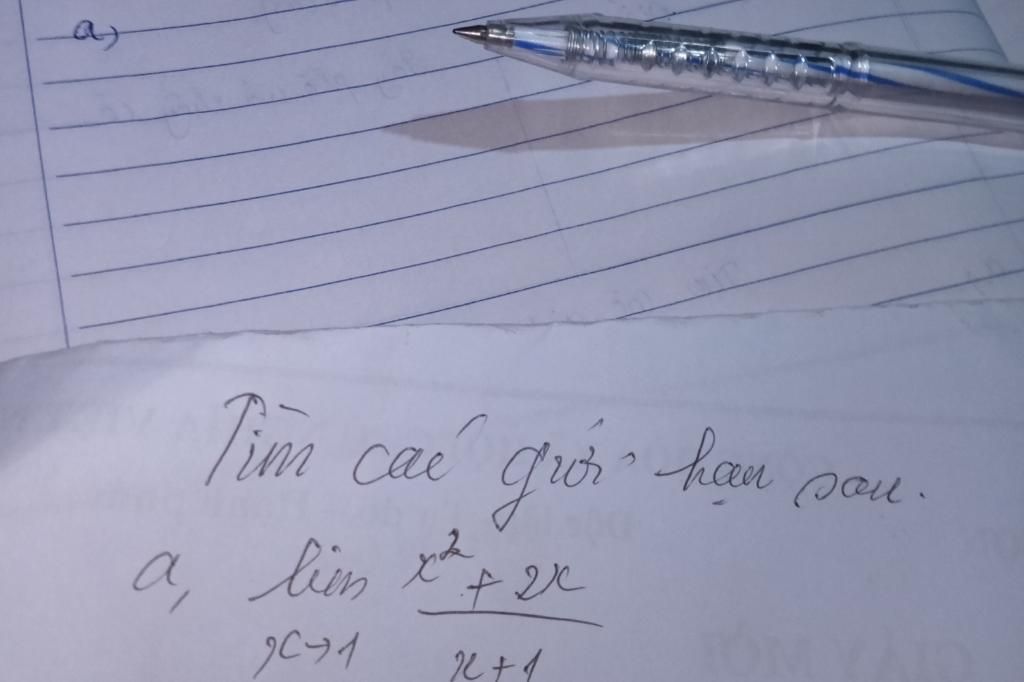 a,
Tìm các giới hạn sau.
a, lim x² + 2x
x→1 x+1